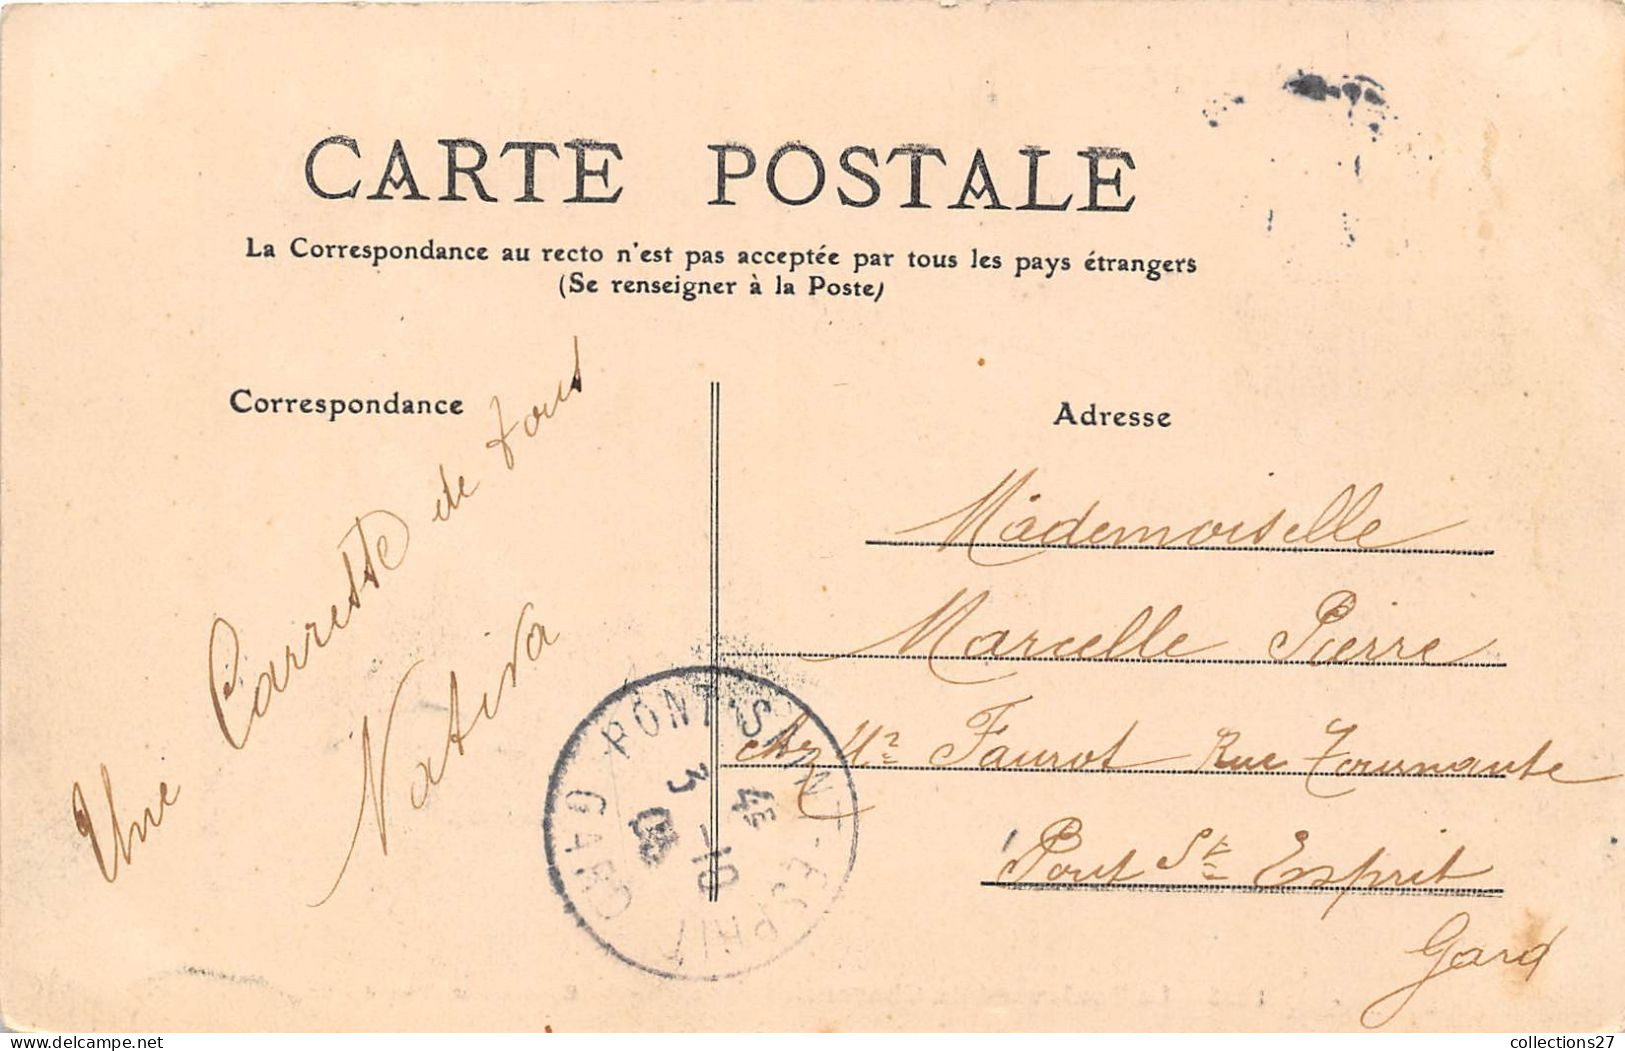 CARTE POSTALE
La Correspondance au recto n'est pas acceptée par tous les pays étrangers
(Se renseigner à la Poste)
Correspondance
Une Carresse de tous
Adresse
Mademoiselle
Marcelle Pierre
chez Faurot Rue Tournante
Pont St Esprit
Gard
PONT-SAINT-ESPRIT
GARD
4E
3 -10
collections27